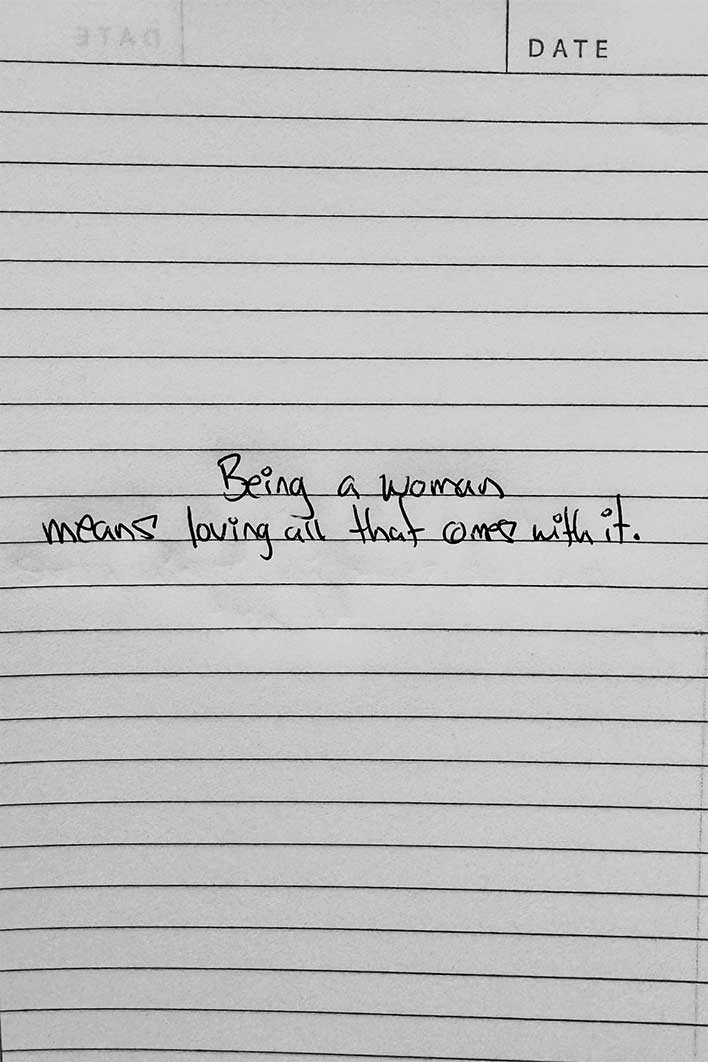 DATE
Being a woman
means loving all that comes with it.